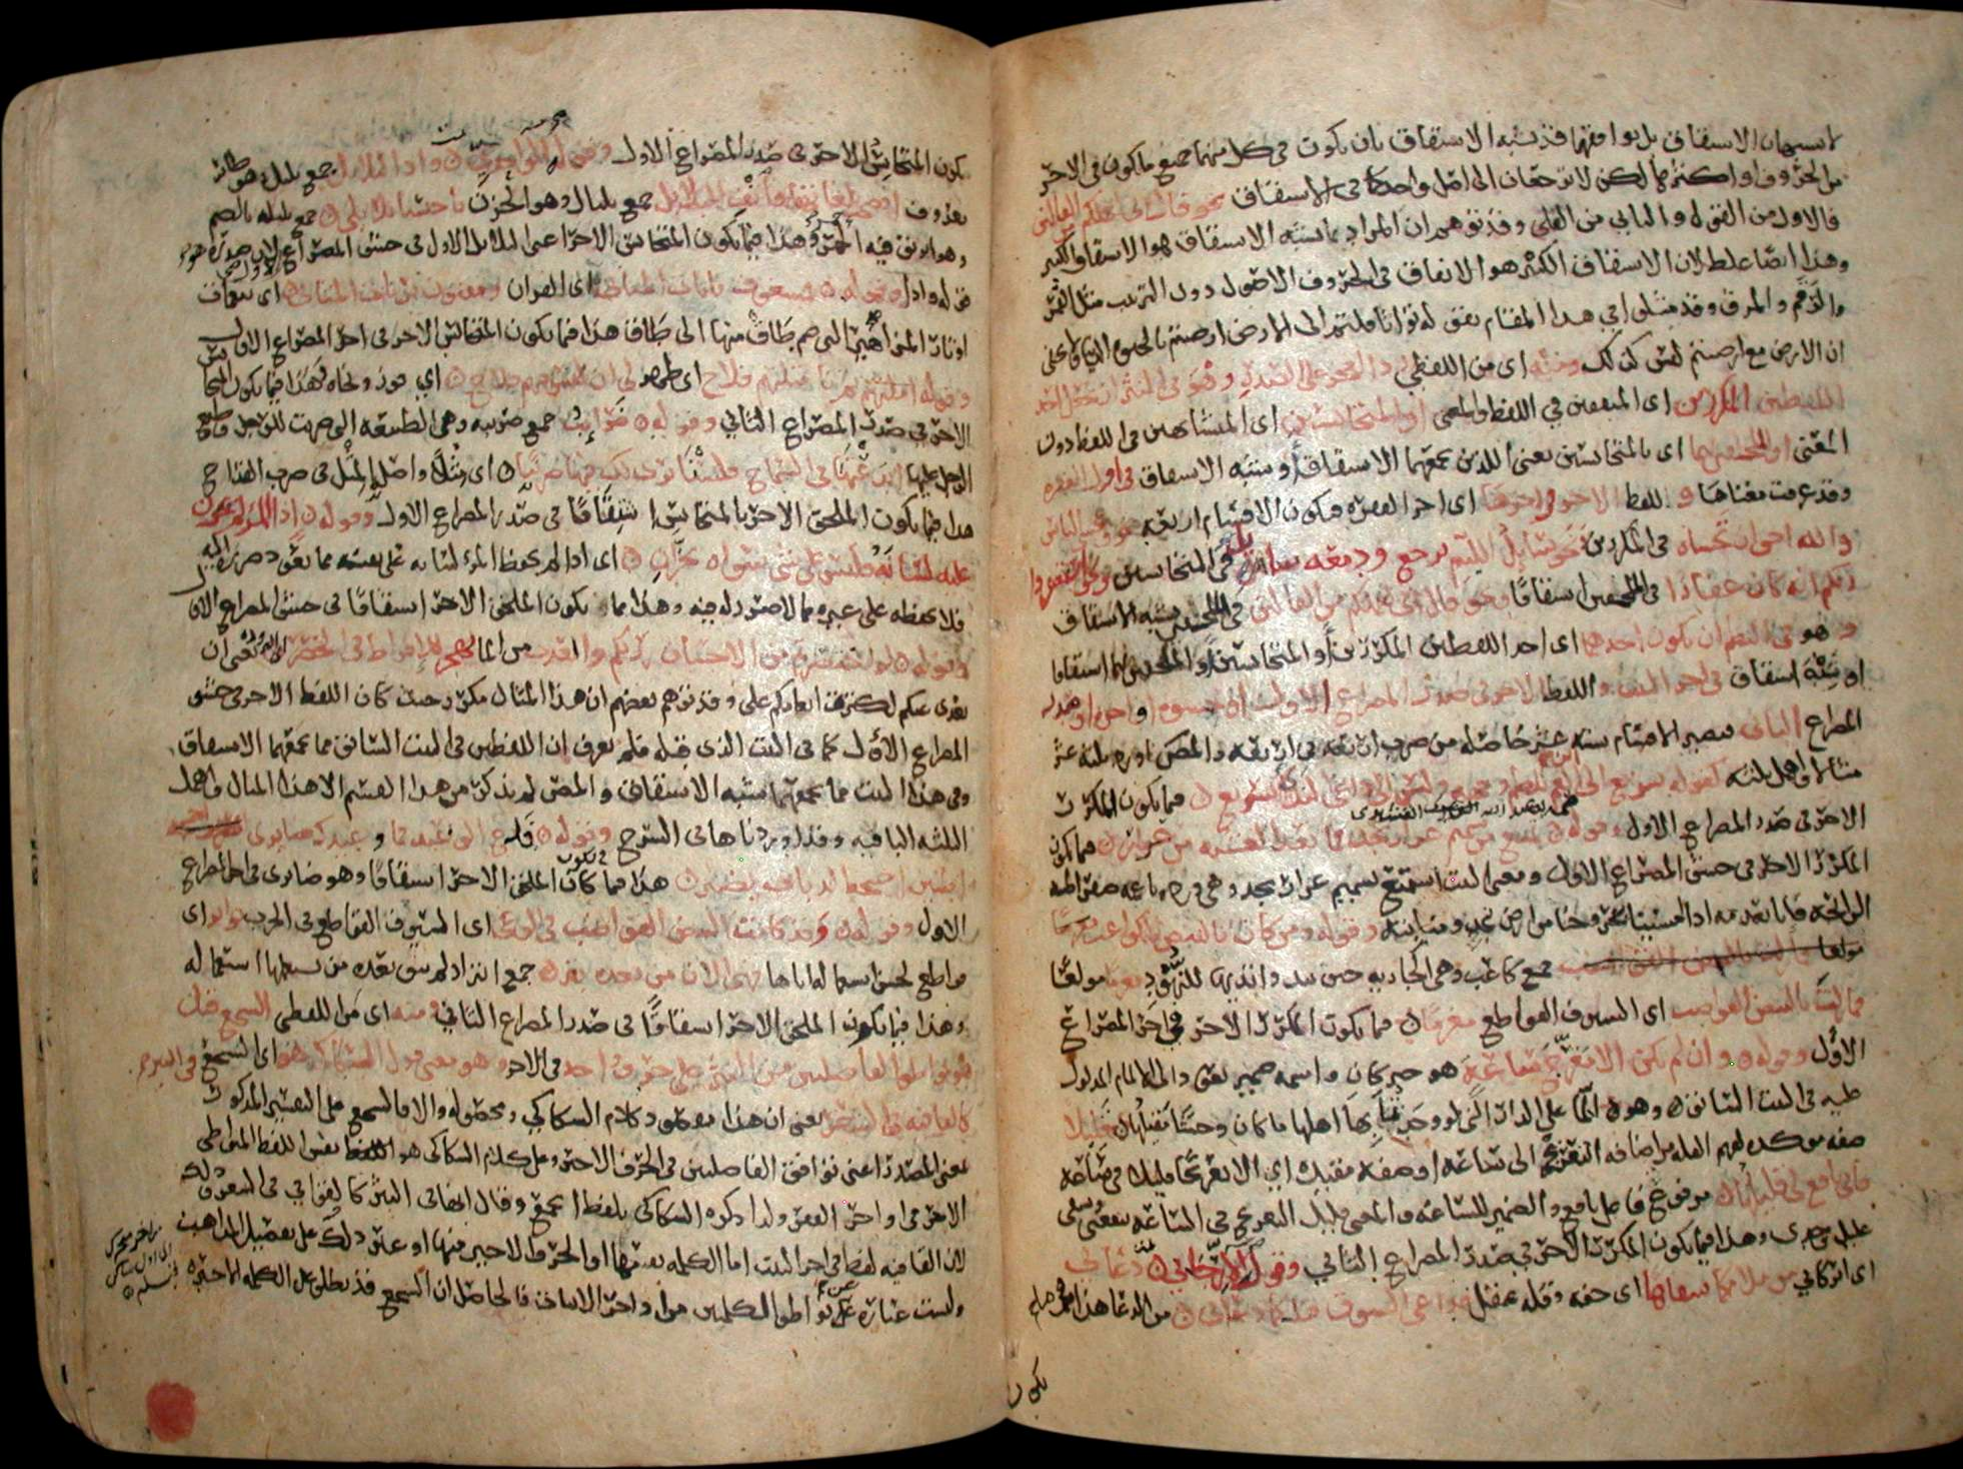 الاشتقاق بل يوافقهما قد يشبه الاشتقاق بان يكون في كل منهما جميع ما يكون في الاخر
من الحروف او اكثرها لكن لا يرجعان الى اصل واحد كما في الاشتقاق نحو قال انى لعملكم من القالين
فالاول من القول والثاني من القلى وقد توهم ان المراد بما يشبه الاشتقاق هو الاشتقاق الكبير
وهذا ايضا غلط لان الاشتقاق الكبير هو الاتفاق في الحروف الاصول دون الترتيب مثل القمر
والرقم والمرق وقد مثلوا في هذا المقام بقوله تعالى اثاقلتم الى الارض ارضيتم بالحيوة الدنيا ولا يخفى
ان الارض مع ارضيتم ليس كذلك ومنه اى من اللفظي رد العجز على الصدر وهو في النثر ان يجعل احد
اللفظين المكررين اى المتفقين في اللفظ والمعنى او المتجانسين اى المتشابهين في اللفظ دون
المعنى او الملحقين بهما اى بالمتجانسين يعنى اللذين يجمعهما الاشتقاق او شبه الاشتقاق في اول الفقره
وقد عرفت معناها و اللفظ الاخر في اخرها اى اخر الفقره فيكون الاقسام اربعه نحو وتخشى الناس
والله احق ان تخشاه في المكررين نحو سائل اللئيم يرجع ودمعه سائل في المتجانسين ونحو استغفروا
ربكم انه كان غفارا في الملحقين اشتقاقا ونحو قال انى لعملكم من القالين في الملحقين بشبه الاشتقاق
و هو في النظم ان يكون احدهما اى احد اللفظين المكررين او المتجانسين او الملحقين بهما اشتقاقا
او شبه اشتقاق في اخر البيت و اللفظ الاخر في صدر المصراع الاول او حشوه او اخره او صدر
المصراع الثاني فيصير الاقسام سته عشر حاصله من ضرب اربعه في اربعه والمصنف اورد ثلثه عشر
مثالا واهمل ثلثه كقوله سريع الى ابن العم يلطم وجهه وليس الى داعي الندى بسريع فيما يكون المكرر
الاخر في صدر المصراع الاول وقوله تمتع من شميم عرار نجد فما بعد العشيه من عرار فيما يكون
المكرر الاخر في حشو المصراع الاول ومعنى البيت استمتع بشميم عرار نجد وهى ورده ناعمه صفرا طيبه
الرائحه فانا نعدمه اذا امسينا بخروجنا من ارض نجد ومنابته وقوله ومن كان بالبيض الكواعب مغرما
مولعا جمع كاعب وهى الجاريه حين يبدو ثديها للنهود مغرما مولعا
فما زلت بالبيض القواضب اى السيوف القواطع مغرما فيما يكون المكرر الاخر في اخر المصراع
الاول وقوله وان لم يكن الا معرج ساعة هو خبر كان واسمه ضمير يعود الى الالمام المدلول
عليه في البيت السابق وهو الما على الدار التى لو وجدتها بها اهلها ما كان وحشا مقيلها قليلا
صفه موكده لفهم القله من اضافه التعريج الى ساعه او صفه مقيده اى الا تعريجا قليلا في ساعه
فانى نافع لى قليلها مرفوع فاعل نافع والضمير للساعه والمعنى قليل التعريج في الساعه ينفعنى ويشفى
غليل وجدى وهذا فيما يكون المكرر الاخر في صدر المصراع الثاني وقوله دعانى
اى اتركانى من ملامكما سفاها اى خفه وقله عقل فداعى الشوق قبلكما دعانى من الدعا هذا فيما
يكون
يكون المتجانس الاخر في صدر المصراع الاول وقوله واذا البلابل جمع بلبل وهو طائر
معروف افصحت بلغاتها فانف البلابل جمع بلبال وهو الحزن باحتساء بلابل جمع بلبله بالضم
وهو ابريق فيه الخمر وهذا فيما يكون المتجانس الاخر اعنى البلابل الاول في حشو المصراع الاول لان صدره هو
قوله واذا وقوله فمشغوف بايات المثاني اى القران ومفتون برنات المثاني اى بنغمات
اوتار المزامير التى ضم طاق منها الى طاق هذا فيما يكون المتجانس الاخر في اخر المصراع الاول
وقوله املتهم ثم تاملتهم فلاح اى ظهر لى ان ليس فيهم فلاح اى فوز ونجاه فهذا فيما يكون المتجانس
الاخر في صدر المصراع الثاني وقوله ضرائب جمع ضريبه وهى الطبيعه التى ضربت للرجل وطبع
الرجل عليها ابدعتها في السماح فلسنا نرى لك فيها ضريبا اى مثلا واصله المثل في ضرب القداح
هذا فيما يكون الملحق الاخر بالمتجانس اشتقاقا في صدر المصراع الاول وقوله اذا المرء لم يخزن
عليه لسانه فليس على شى سواه بخزان اى اذا لم يحفظ المرء لسانه على نفسه مما يعود ضرره اليه
فلا يحفظه على غيره مما لا ضرر له فيه وهذا مما يكون الملحق الاخر اشتقاقا في حشو المصراع الاول
وقوله لو اختصرتم من الاحسان زرتكم والعذب من الما يهجر للافراط في الخصر اى البرد يعنى ان
بعدى عنكم لكثره انعامكم على وقد توهم بعضهم ان هذا المثال مكرر حيث كان اللفظ الاخر في حشو
المصراع الاول كما في البيت الذى قبله فلم يعرف ان اللفظين في البيت السابق مما يجمعهما الاشتقاق
وفي هذا البيت مما يجمعهما شبه الاشتقاق والمصنف لم يذكر من هذا القسم الا هذا المثال واهمل
الثلثه الباقيه وقد اوردناها في الشرح وقوله فدع الوعيد فما وعيدك ضايرى
اطنين اجنحه الذباب يضير هذا فيما يكون الملحق الاخر اشتقاقا وهو ضايرى في اخر المصراع
الاول وقوله وقد كانت البيض القواضب في الوغى اى السيوف القواطع في الحرب بواتر اى
قواطع لحسن استعماله اياها فهى الان من بعده بتر جمع ابتر اذ لم يبق بعده من يستعملها استعماله
وهذا فيما يكون الملحق الاخر اشتقاقا في صدر المصراع الثاني ومنه اى من اللفظي السجع قيل
هو تواطؤ الفاصلتين من النثر على حرف واحد في الاخر وهو معنى قول السكاكى هو اى السجع في النثر
كالقافيه في الشعر يعنى ان هذا مقصود كلام السكاكي ومحصوله والا فالسجع على التفسير المذكور
بمعنى المصدر اعنى توافق الفاصلتين في الحرف الاخير وعلى كلام السكاكى هو اللفظ نفس اللفظ المتواطى
الاخر في اواخر الفقر ولذا ذكره السكاكى بلفظ الجمع وقال انها في النثر كالقوافي في الشعر وذلك
لان القافيه لفظ في اخر البيت اما الكلمه نفسها او الحرف الاخير منها او غير ذلك على تفصيل المذاهب
وليست عباره عن تواطؤ الكلمتين من اواخر الابيات فالحاصل ان السجع قد يطلق على الكلمه الاخيره